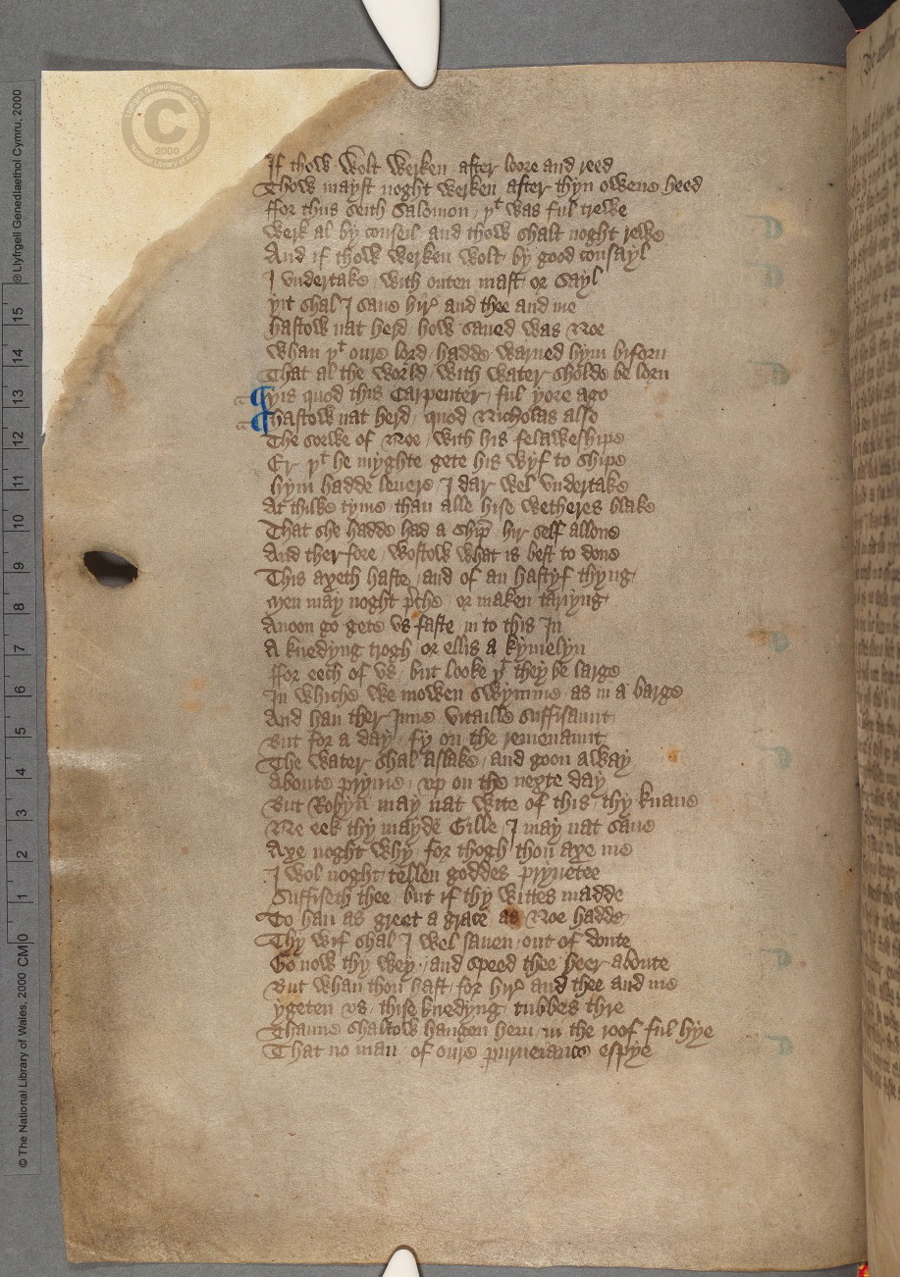 If thow wolt werken after loore and reed
Thow mayst noght werken after thyn owene heed
ffor thus seith Salomon / þͭ was ful trewe
Werk al by conseil and thow shalt noght rewe
And if thow werken wolt / by good consayl
I vndertake / with outen mast or sayl
yit shal I saue hir̉ and thee and me
hastow nat herd / how saued was Noe
Whan þͭ oure lord / hadde warned hym biforn
That al the world / with water sholde be lorn
yis quod this Carpenter / ful yore ago
hastow nat herd / quod Nicholas also
The sorwe of Noe / with his felaweshipe
Er þͭ he myghte gete his wyf to shipe
hym hadde leuere / I dar wel vndertake
At thilke tyme / than alle hise wetheres blake
That she hadde had a ship / hir self allone
And therfore / wostow what is best to done
This axeth haste / and of an hastyf thyng
Men may noght p̄che / or maken tariyng
Anoon go gete vs faste / in to this In
A knedyng trogh / or ellis a kymelyn
ffor eech of vs / but looke þͭ they be large
In whiche we mowen swymme as in a barge
And han ther Inne vitaille suffisaunt
But for a day / fy on the remenaunt
The water shal aslake / and goon away
Aboute pryme / vp on the nexte day
But Robyn may nat wite of this / thy knaue
Ne eek thy mayde Gille / I may nat saue
Axe noght why / for thogh thou axe me
I wol noght tellen goddes pryuetee
Suffiseth thee / but if thy wittes madde
To han as greet a grace as Noe hadde
Thy wif shal I wel sauen / out of doute
Go now thy wey / and speed thee heer aboute
But whan thou hast / for hir̉ and thee and me
ygeten vs / thise knedyng tubbes thre
Thanne shaltow hangen hem / in the roof ful hye
That no man of oure purueiance espye
© Llyfrgell Genedlaethol Cymru, 2000
15 14 13 12 11 10 9 8 7 6 5 4 3 2 1 CM 0
© The National Library of Wales, 2000